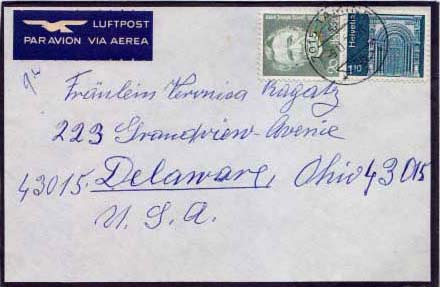 LUFTPOST
PAR AVION VIA AEREA
Helvetia
110
Fräulein Veronica Ragatz
223 Grandview-Avenue
43015. Delaware, Ohio 43015
U. S. A.